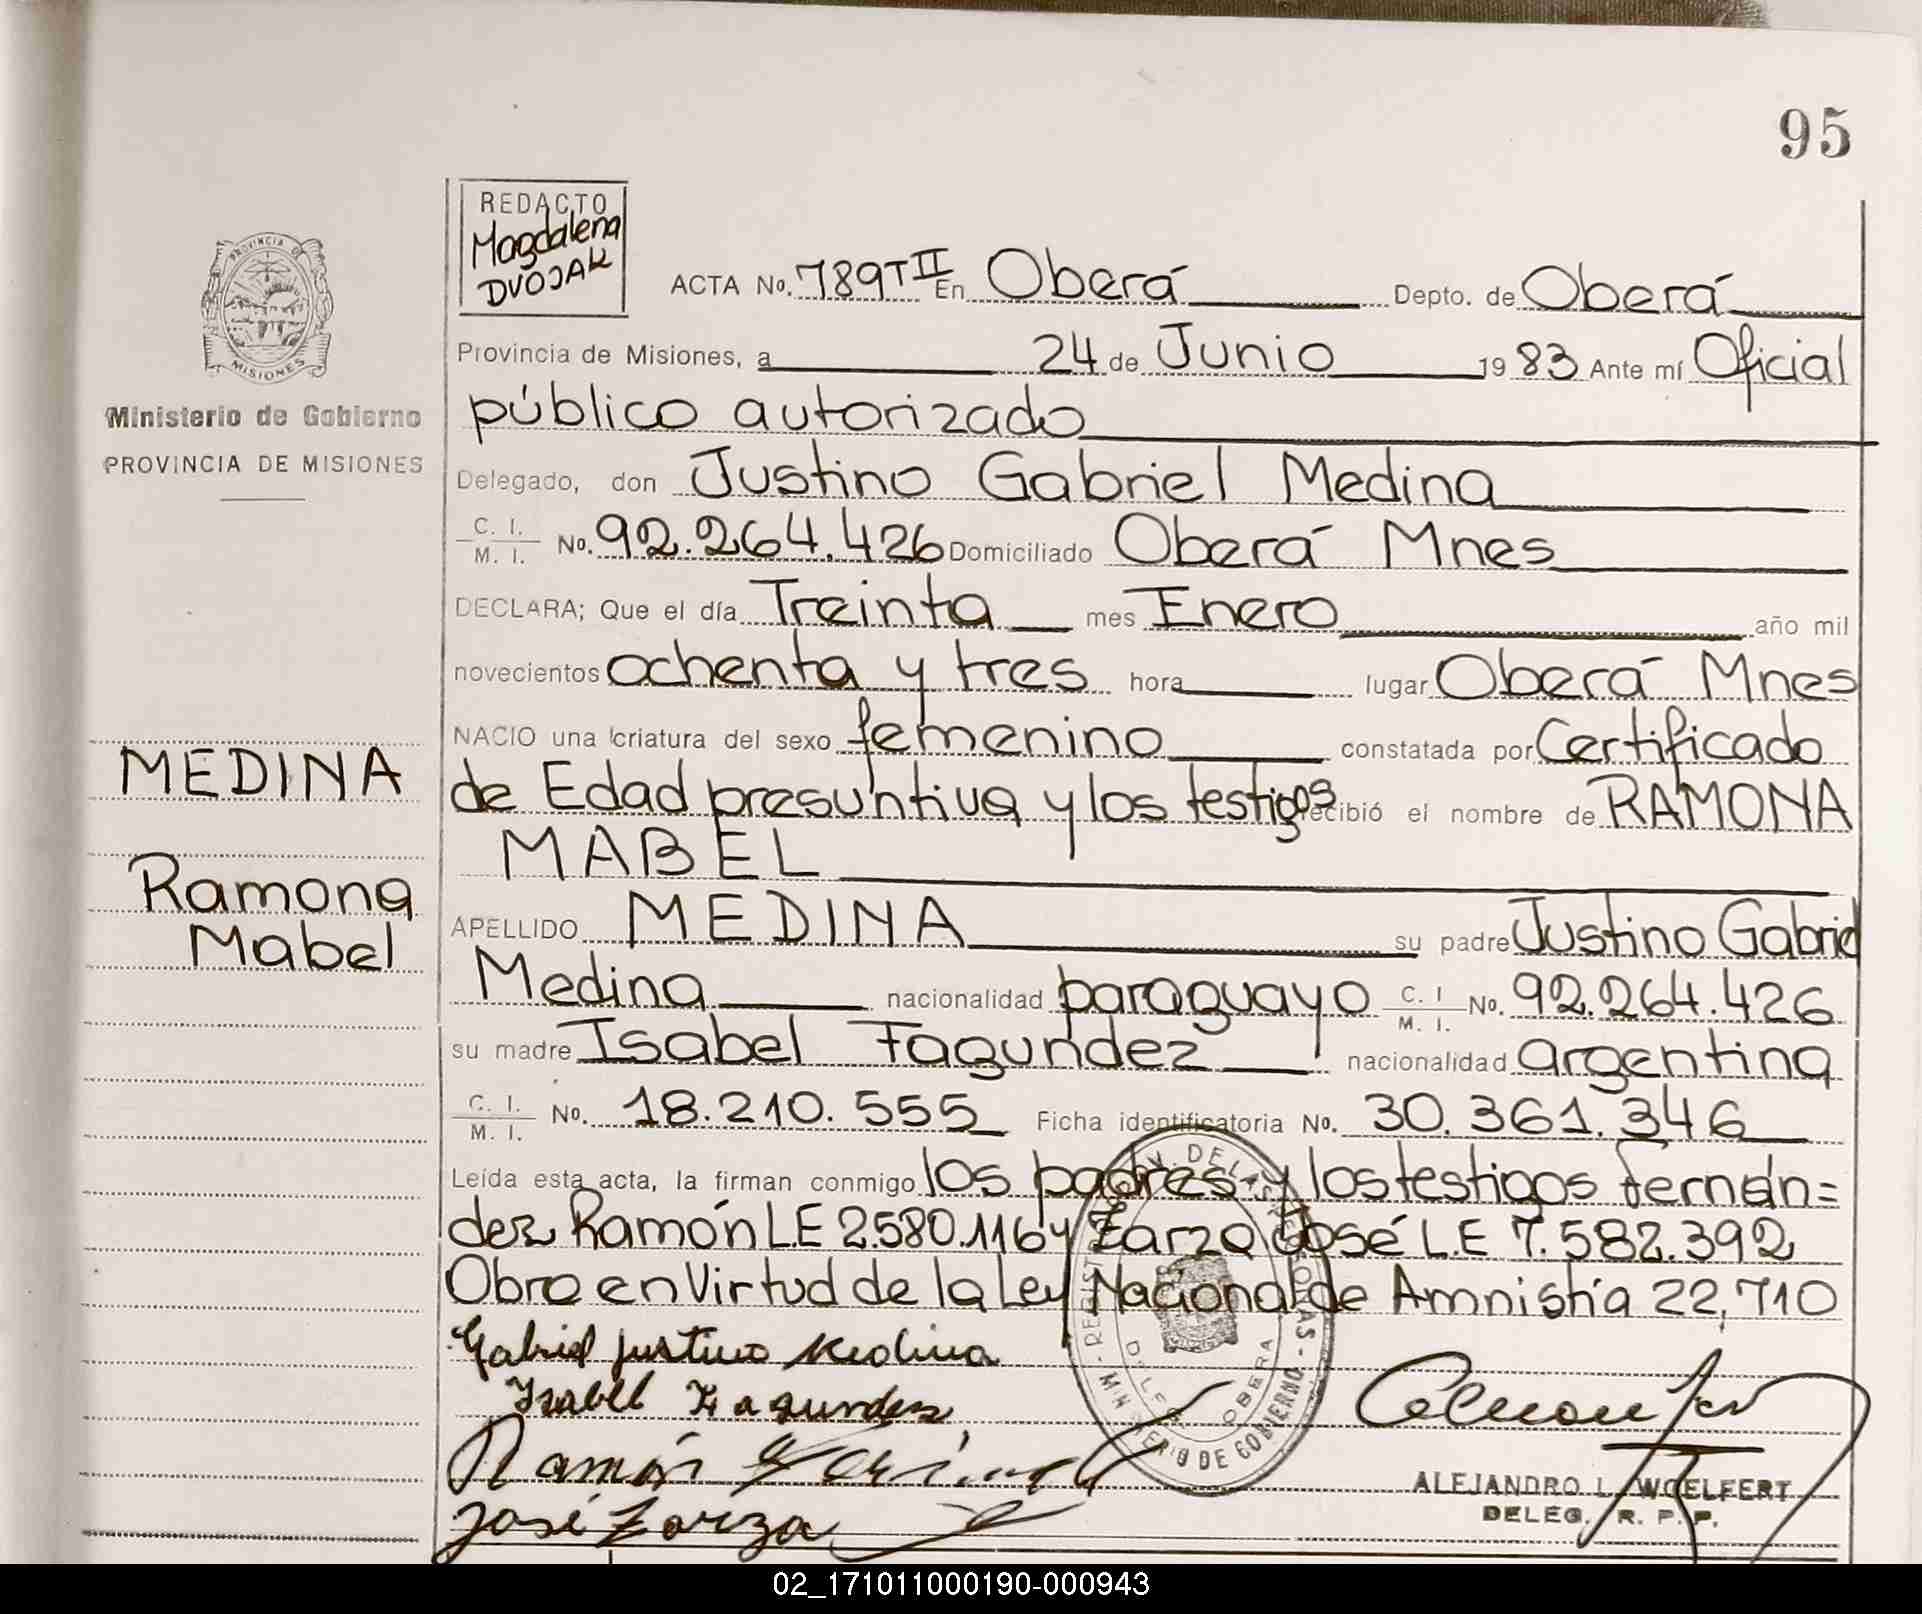 95
REDACTO
Magdalena
DVOJAK
PROVINCIA DE
MISIONES
Ministerio de Gobierno
PROVINCIA DE MISIONES
MEDINA
Ramona
Mabel
ACTA No. 789 T II En Oberá Depto. de Oberá
Provincia de Misiones, a 24 de Junio 1983 Ante mí Oficial
público autorizado
Delegado, don Justino Gabriel Medina
C. I. M. I. No. 92.264.426 Domiciliado Oberá Mnes
DECLARA; Que el día Treinta mes Enero año mil
novecientos ochenta y tres hora lugar Oberá Mnes
NACIO una criatura del sexo femenino constatada por Certificado
de Edad presuntiva y los testigos recibió el nombre de RAMONA
MABEL
APELLIDO MEDINA su padre Justino Gabriel
Medina nacionalidad paraguayo C. I M. I. No. 92.264.426
su madre Isabel Fagundez nacionalidad argentina
C. I. M. I. No. 18.210.555 Ficha identificatoria No. 30.361.346
Leída esta acta, la firman conmigo los padres y los testigos Fernán=
dez Ramón L.E 2.580.116 y Zarza José L.E 7.582.392
Obro en Virtud de la Ley Nacional de Amnistía 22,710
Gabriel justino Medina
Isabel Fagundez
Ramón
José Zarza
ALEJANDRO L. WOELFERT
DELEG. R. P. P.
DE LAS PERSONAS - MINISTERIO DE GOBIERNO
OBERA
02_171011000190-000943